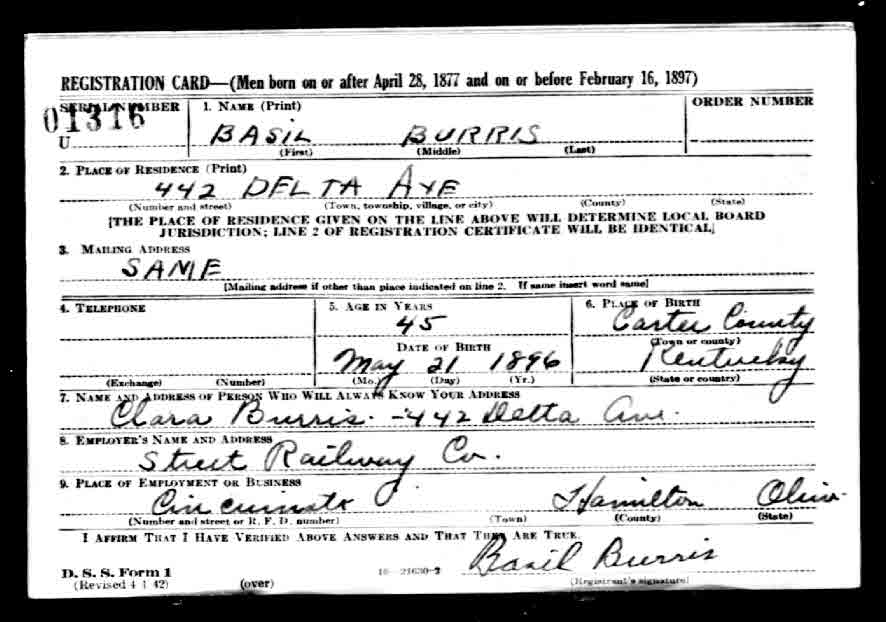 REGISTRATION CARD—(Men born on or after April 28, 1877 and on or before February 16, 1897)
SERIAL NUMBER 1. NAME (Print) ORDER NUMBER
01316
U BASIL BURRIS
(First) (Middle) (Last)
2. PLACE OF RESIDENCE (Print)
442 DELTA AVE
(Number and street) (Town, township, village, or city) (County) (State)
[THE PLACE OF RESIDENCE GIVEN ON THE LINE ABOVE WILL DETERMINE LOCAL BOARD
JURISDICTION; LINE 2 OF REGISTRATION CERTIFICATE WILL BE IDENTICAL]
3. MAILING ADDRESS
SAME
[Mailing address if other than place indicated on line 2. If same insert word same]
4. TELEPHONE 5. AGE IN YEARS 6. PLACE OF BIRTH
45 Carter County
DATE OF BIRTH (Town or county)
May 21 1896 Kentucky
(Exchange) (Number) (Mo.) (Day) (Yr.) (State or country)
7. NAME AND ADDRESS OF PERSON WHO WILL ALWAYS KNOW YOUR ADDRESS
Clara Burris - 442 Delta Ave.
8. EMPLOYER'S NAME AND ADDRESS
Street Railway Co.
9. PLACE OF EMPLOYMENT OR BUSINESS
Cincinnati Hamilton Ohio
(Number and street or R. F. D. number) (Town) (County) (State)
I AFFIRM THAT I HAVE VERIFIED ABOVE ANSWERS AND THAT THEY ARE TRUE.
Basil Burris
D. S. S. Form 1 16—21630-2 (Registrant's signature)
(Revised 4-1-42) (over)